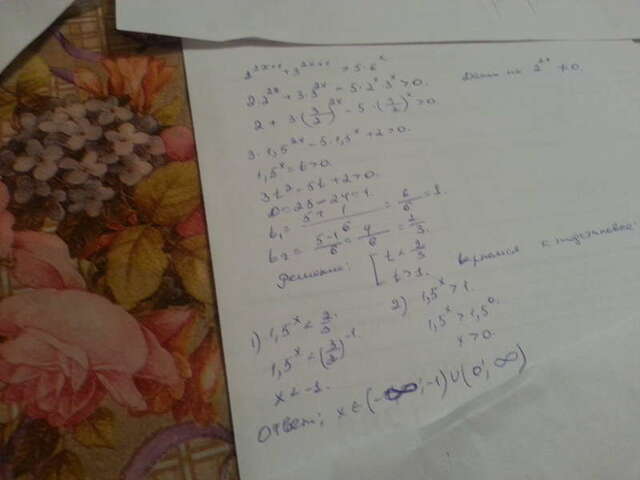 2^{2x+1} + 3^{2x+1} > 5·6^x
2·2^{2x} + 3·3^{2x} - 5·2^x·3^x > 0. на 2^{2x} ≠ 0.
2 + 3·(3/2)^{2x} - 5·(3/2)^x > 0
3·1,5^{2x} - 5·1,5^x + 2 > 0.
1,5^x = t > 0.
3t^2 - 5t + 2 > 0.
D = 25 - 24 = 1.
t_1 = (5+1)/6 = 6/6 = 1.
t_2 = (5-1)/6 = 4/6 = 2/3.
Решение: [ t < 2/3 t > 1. вернемся к подстановке:
1) 1,5^x < 2/3. 2) 1,5^x > 1.
1,5^x < (3/2)^{-1} 1,5^x > 1,5^0.
x < -1. x > 0.
Ответ: x ∈ (-∞; -1) ∪ (0; ∞)